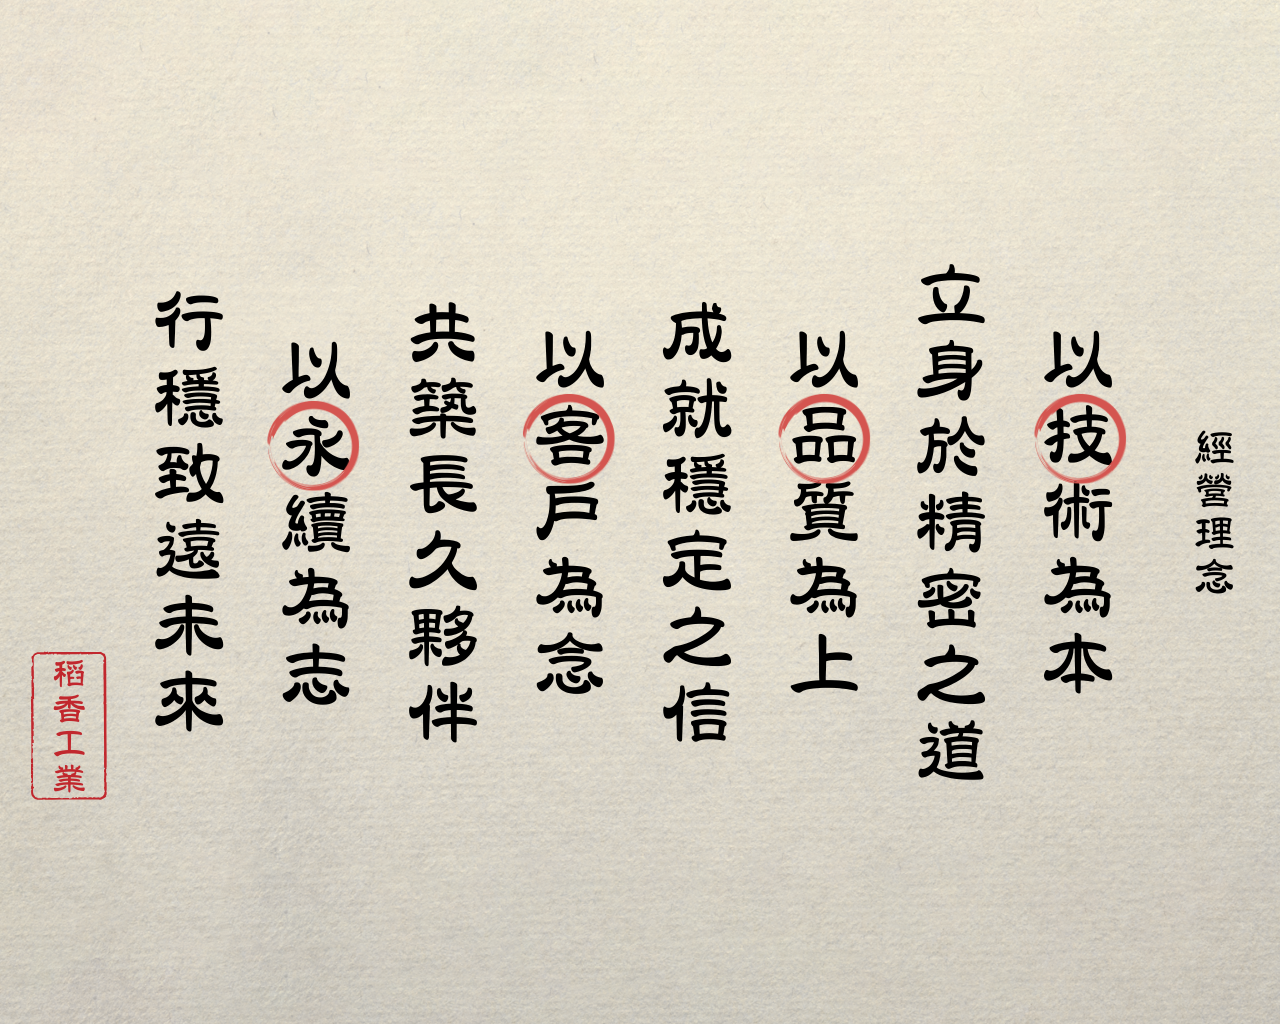 經營理念
以技術為本
立身於精密之道
以品質為上
成就穩定之信
以客戶為念
共築長久夥伴
以永續為志
行穩致遠未來
稻香工業